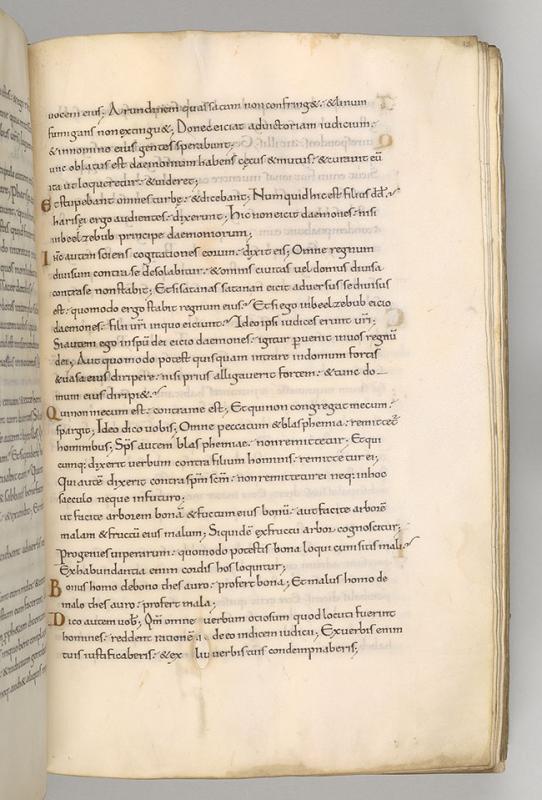 vocem eius; Arundinem quassatam non confringet: & linum
fumigans non extinguet; Donec eiciat ad uictoriam iudicium:
& in nomine eius gentes sperabunt;
unc oblatus est daemonium habens cęcus & mutus: & curauit eū
ita ut loqueretur: & uideret;
Et stupebant omnes turbę: & dicebant; Numquid hic est filius dd̄?
harisęi ergo audientes: dixerunt; hic non eicit daemones: nisi
in beelzebub principe daemoniorum;
Ihs autem sciens cogitationes eorum: dixit eis; Omne regnum
diuisum contra se desolabitur: & omnis ciuitas uel domus diuisa
contra se non stabit; Et si satanas satanan eicit aduersus se diuisus
est: quomodo ergo stabit regnum eius? Et si ego in beelzebub eicio
daemones: filii uri in quo eiciunt? Ideo ipsi iudices erunt uri;
Si autem ego in spū dei eicio daemones: igitur puenit in uos regnū
dei; Aut quomodo potest quisquam intrare in domum fortis
& uasa eius diripere: nisi prius alligauerit fortem: & tunc do-
mum eius diripiet?
Qui non mecum est: contra me est; Et qui non congregat mecum:
spargit; Ideo dico uobis; Omne peccatum & blasphemia: remittet̄
hominibus; Sps autem blasphemiae: non remittetur; Et qui
cumq; dixerit uerbum contra filium hominis: remittetur ei;
Qui autē dixerit contra spm scm: non remittetur ei neq; in hoc
saeculo neque in futuro;
ut facite arborem bonā & fructum eius bonū: aut facite arborē
malam & fructū eius malum; Siquidē ex fructu arbor cognoscitur;
Progenies uiperarum: quomodo potestis bona loqui cum sitis mali?
Ex habundantia enim cordis hos loquitur;
Bonus homo de bono thesauro: profert bona; Et malus homo de
malo thesauro: profert mala;
Dico autem uob; Qm̄ omne uerbum otiosum quod locuti fuerint
homines: reddent rationē de eo in diem iudicii; Ex uerbis enim
tuis iustificaberis: & ex uerbis tuis condempnaberis;